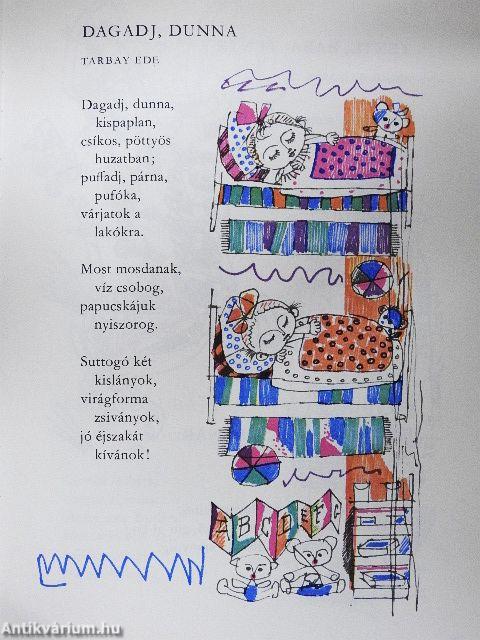 DAGADJ, DUNNA
TARBAY EDE
Dagadj, dunna,
kispaplan,
csíkos, pöttyös
huzatban;
puffadj, párna,
pufóka,
várjatok a
lakókra.
Most mosdanak,
víz csobog,
papucskájuk
nyiszorog.
Suttogó két
kislányok,
virágforma
zsiványok,
jó éjszakát
kívánok!
ABCDEFG
Antikvárium.hu